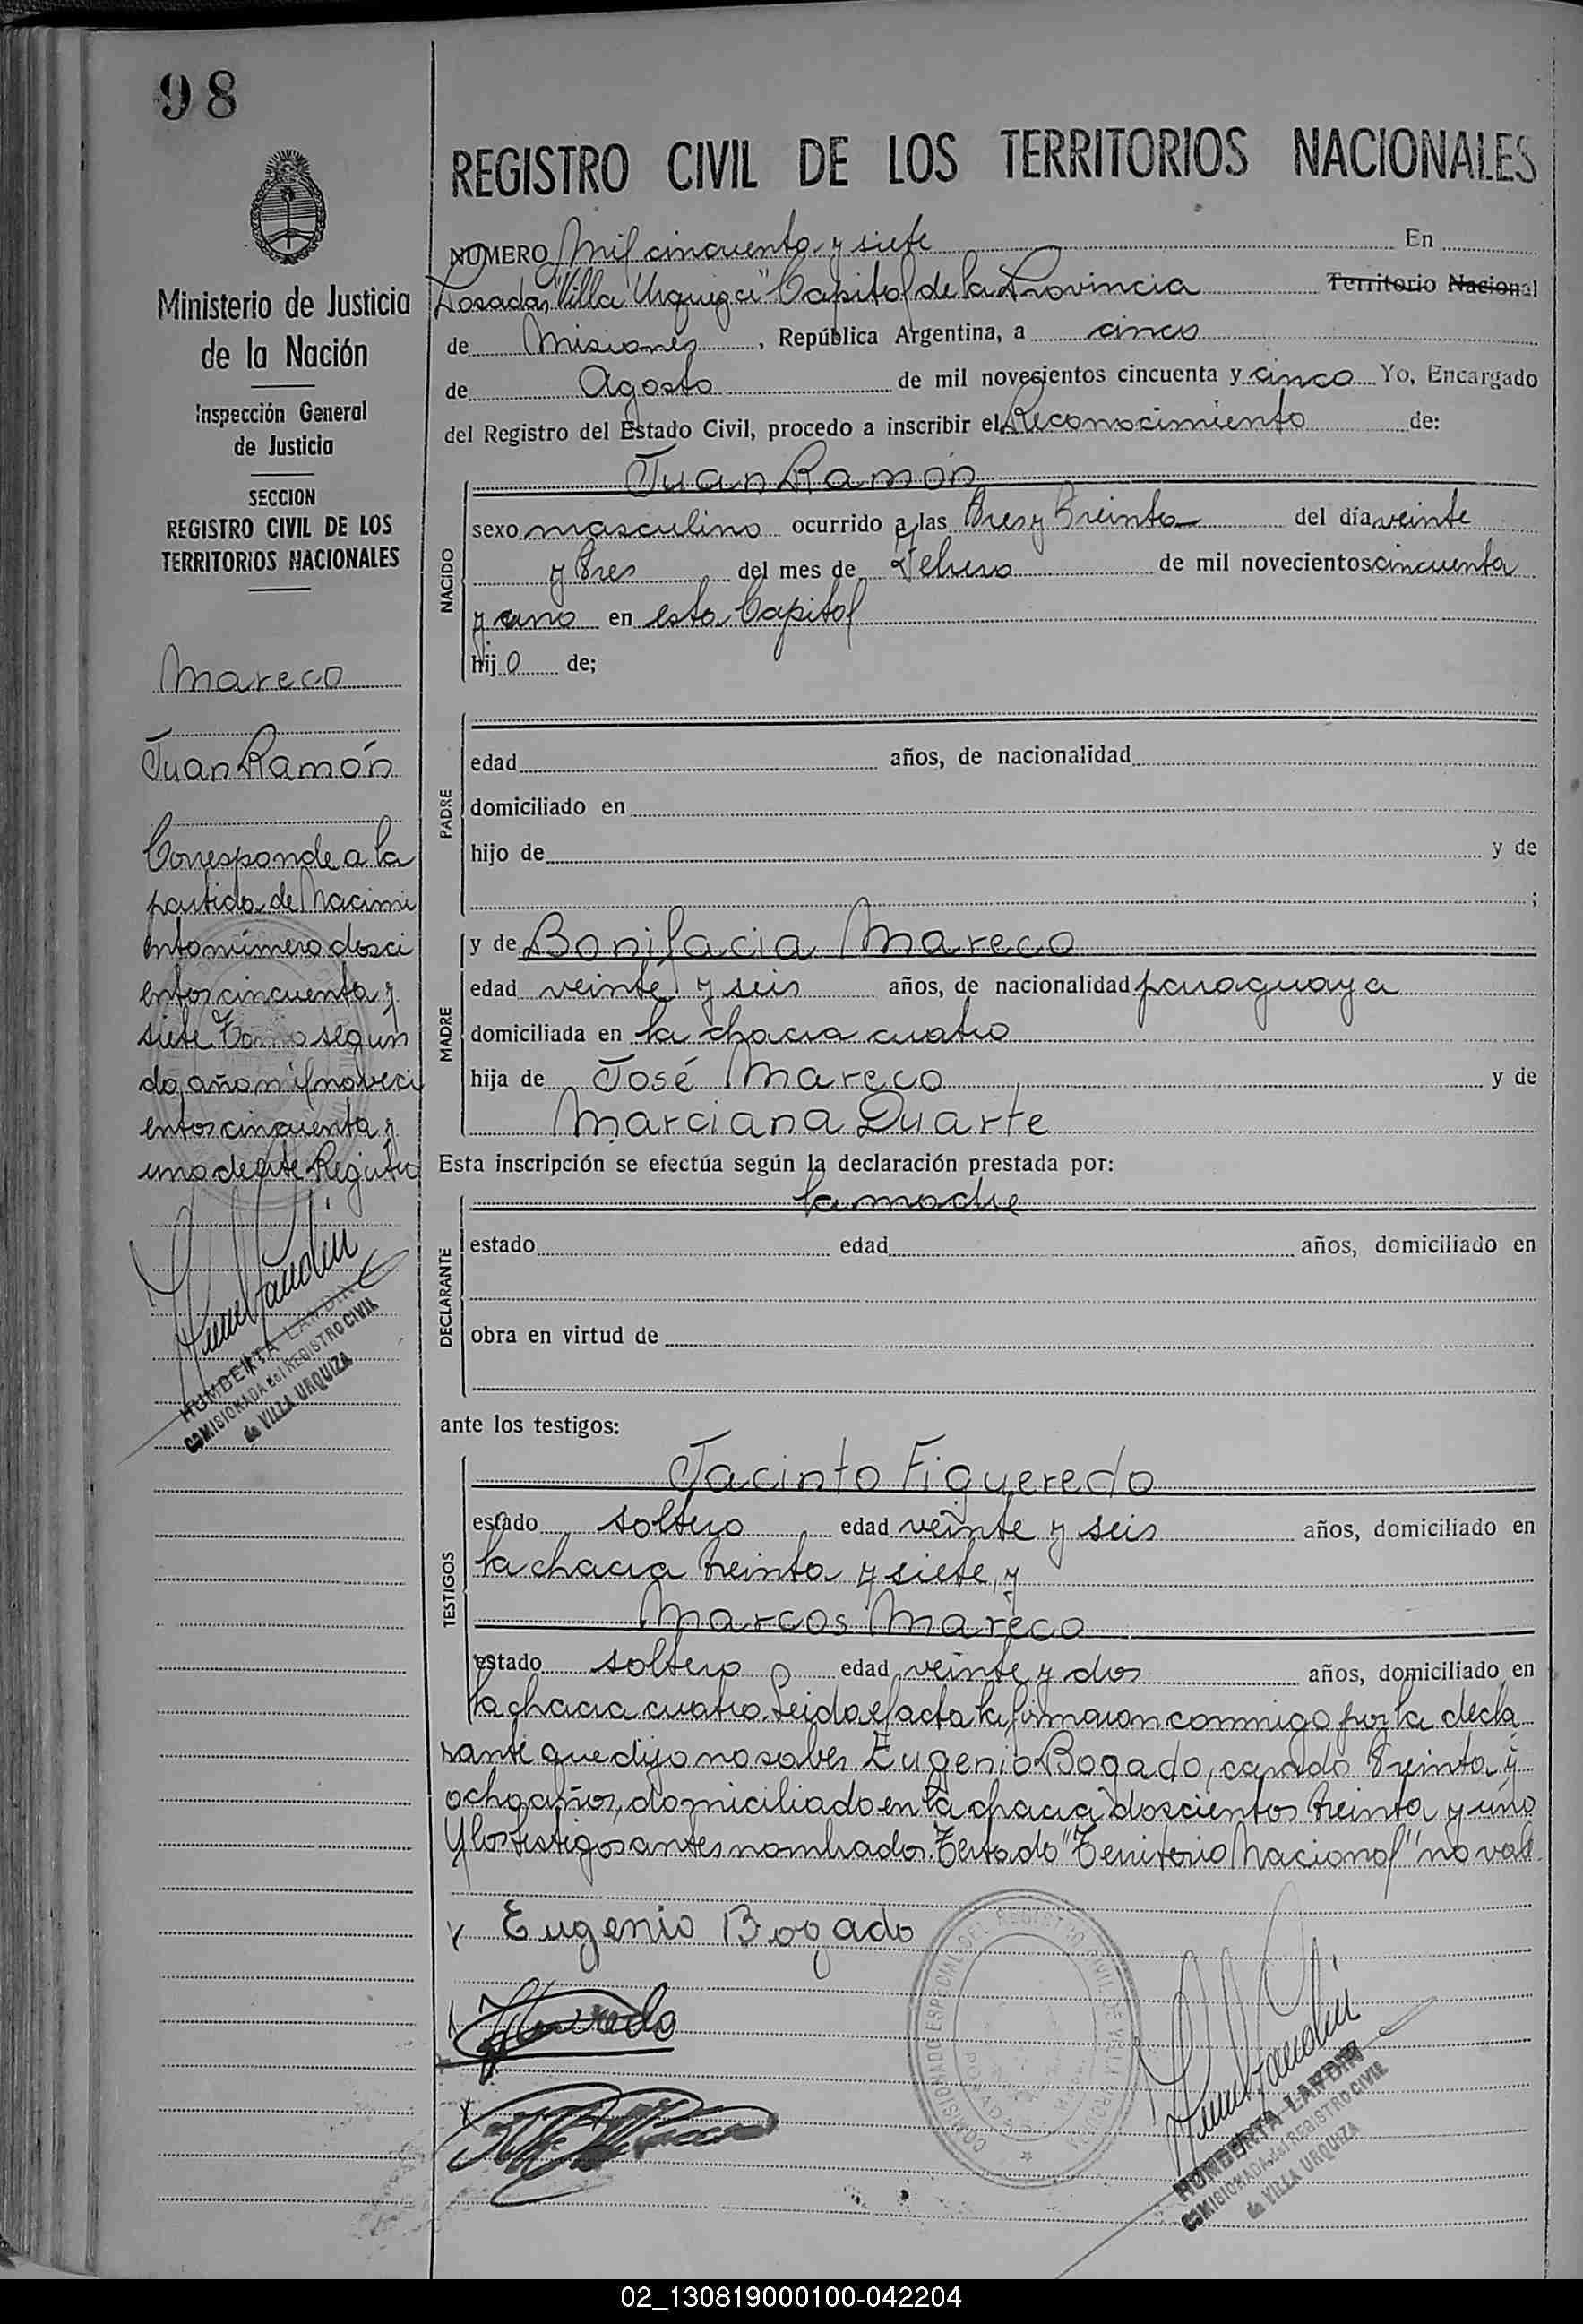 98
Ministerio de Justicia
de la Nación
Inspección General
de Justicia
SECCION
REGISTRO CIVIL DE LOS
TERRITORIOS NACIONALES
Mareco
Juan Ramón
Corresponde a la
partida de Nacimi
ento número dosci
entos cincuenta y
siete Tomo segun
do año mil noveci
entos cincuenta y
uno de este Registro
HUMBERTA LANDIN
COMISIONADA del REGISTRO CIVIL
de VILLA URQUIZA
REGISTRO CIVIL DE LOS TERRITORIOS NACIONALES
NUMERO Mil cincuenta y siete En
Posadas, "Villa Urquiza" Capital de la Provincia Territorio Nacional
de Misiones, República Argentina, a cinco
de Agosto de mil novecientos cincuenta y cinco Yo, Encargado
del Registro del Estado Civil, procedo a inscribir el Reconocimiento de:
NACIDO
Juan Ramón
sexo masculino ocurrido a las tres y treinta del día veinte
y tres del mes de Febrero de mil novecientos cincuenta
y uno en esta Capital
hijo de;
PADRE
edad años, de nacionalidad
domiciliado en
hijo de y de
;
MADRE
y de Bonifacia Mareco
edad veinte y seis años, de nacionalidad paraguaya
domiciliada en la chacra cuatro
hija de José Mareco y de
Marciana Duarte
Esta inscripción se efectúa según la declaración prestada por:
DECLARANTE
la madre
estado edad años, domiciliado en
obra en virtud de
ante los testigos:
TESTIGOS
Jacinto Figueredo
estado soltero edad veinte y seis años, domiciliado en
la chacra treinta y siete, y
Marcos Mareco
estado soltero edad veinte y dos años, domiciliado en
la chacra cuatro. Leida el acta la firmaron conmigo por la decla
rante que dijo no saber Eugenio Bogado, casado treinta y
ocho años, domiciliado en la chacra doscientos treinta y uno
y los testigos antes nombrados. Testado "Territorio Nacional" no vale
Eugenio Bogado
COMISIONADO ESPECIAL DEL REGISTRO CIVIL DE VILLA URQUIZA
HUMBERTA LANDIN
COMISIONADA del REGISTRO CIVIL
de VILLA URQUIZA
02_130819000100-042204